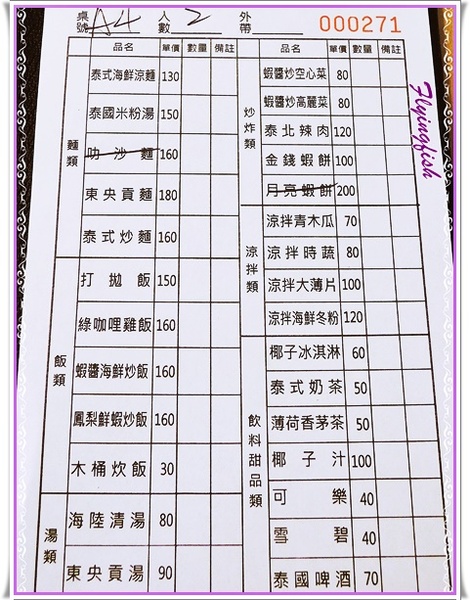 桌號 A4 人數 2 外帶 000271
品名 單價 數量 備註
麵類
泰式海鮮涼麵 130
泰國米粉湯 150
叻沙麵 160
東央貢麵 180
泰式炒麵 160
飯類
打拋飯 150
綠咖哩雞飯 160
蝦醬海鮮炒飯 160
鳳梨鮮蝦炒飯 160
木桶炊飯 30
湯類
海陸清湯 80
東央貢湯 90
品名 單價 數量 備註
炒炸類
蝦醬炒空心菜 80
蝦醬炒高麗菜 80
泰北辣肉 120
金錢蝦餅 100
月亮蝦餅 200
涼拌類
涼拌青木瓜 70
涼拌時蔬 80
涼拌大薄片 100
涼拌海鮮冬粉 120
飲料甜品類
椰子冰淇淋 60
泰式奶茶 50
薄荷香茅茶 50
椰子汁 100
可樂 40
雪碧 40
泰國啤酒 70
Flyingfish